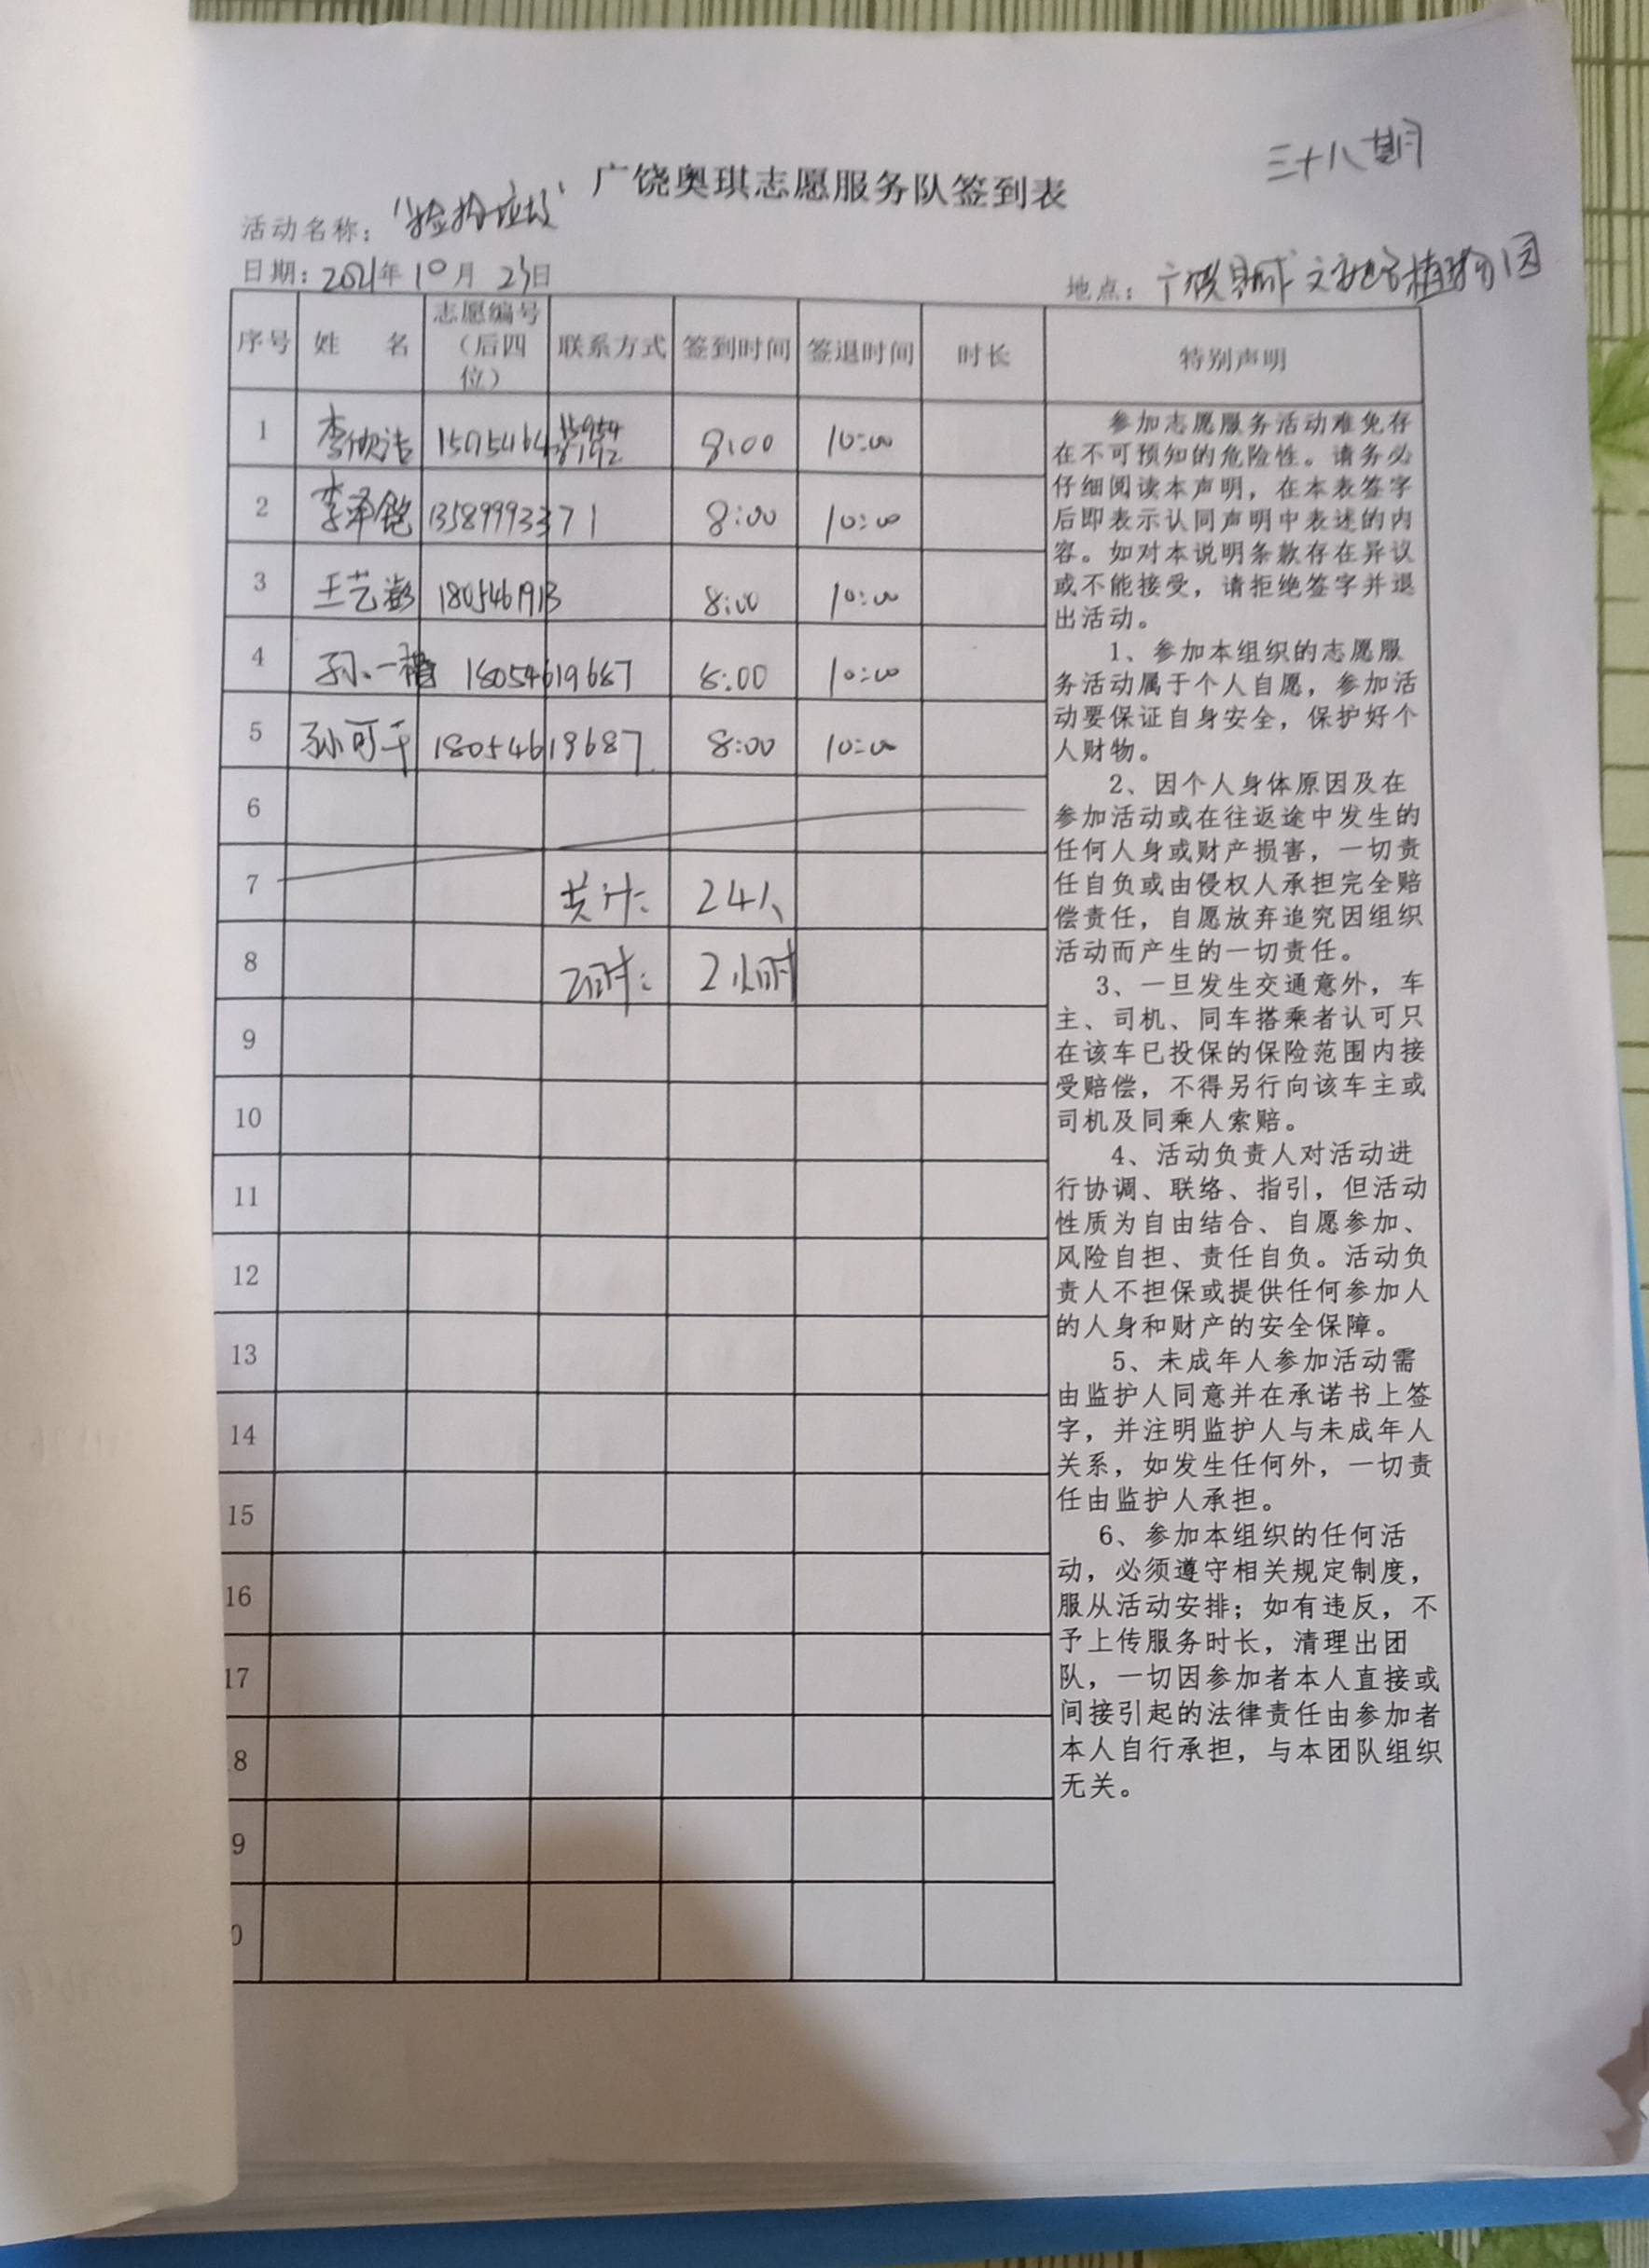 三十八期
广饶奥琪志愿服务队签到表
活动名称：“捡拾垃圾”
日期：2021年10月23日
地点：广饶县城 植物园
序号 姓 名 志愿编号（后四位） 联系方式 签到时间 签退时间 时长 特别声明
1 李欣洁 8:00 10:00
2 李泽铭 13589993371 8:00 10:00
3 王艺澎 180546191 8:00 10:00
4 孙一 18054619687 8:00 10:00
5 孙可千 18054619687 8:00 10:00
6
7 共计： 24人
8 工时： 2小时
9
10
11
12
13
14
15
16
17
8
9
0
参加志愿服务活动难免存
在不可预知的危险性。请务必
仔细阅读本声明，在本表签字
后即表示认同声明中表述的内
容。如对本说明条款存在异议
或不能接受，请拒绝签字并退
出活动。
1、参加本组织的志愿服
务活动属于个人自愿，参加活
动要保证自身安全，保护好个
人财物。
2、因个人身体原因及在
参加活动或在往返途中发生的
任何人身或财产损害，一切责
任自负或由侵权人承担完全赔
偿责任，自愿放弃追究因组织
活动而产生的一切责任。
3、一旦发生交通意外，车
主、司机、同车搭乘者认可只
在该车已投保的保险范围内接
受赔偿，不得另行向该车主或
司机及同乘人索赔。
4、活动负责人对活动进
行协调、联络、指引，但活动
性质为自由结合、自愿参加、
风险自担、责任自负。活动负
责人不担保或提供任何参加人
的人身和财产的安全保障。
5、未成年人参加活动需
由监护人同意并在承诺书上签
字，并注明监护人与未成年人
关系，如发生任何外，一切责
任由监护人承担。
6、参加本组织的任何活
动，必须遵守相关规定制度，
服从活动安排；如有违反，不
予上传服务时长，清理出团
队，一切因参加者本人直接或
间接引起的法律责任由参加者
本人自行承担，与本团队组织
无关。